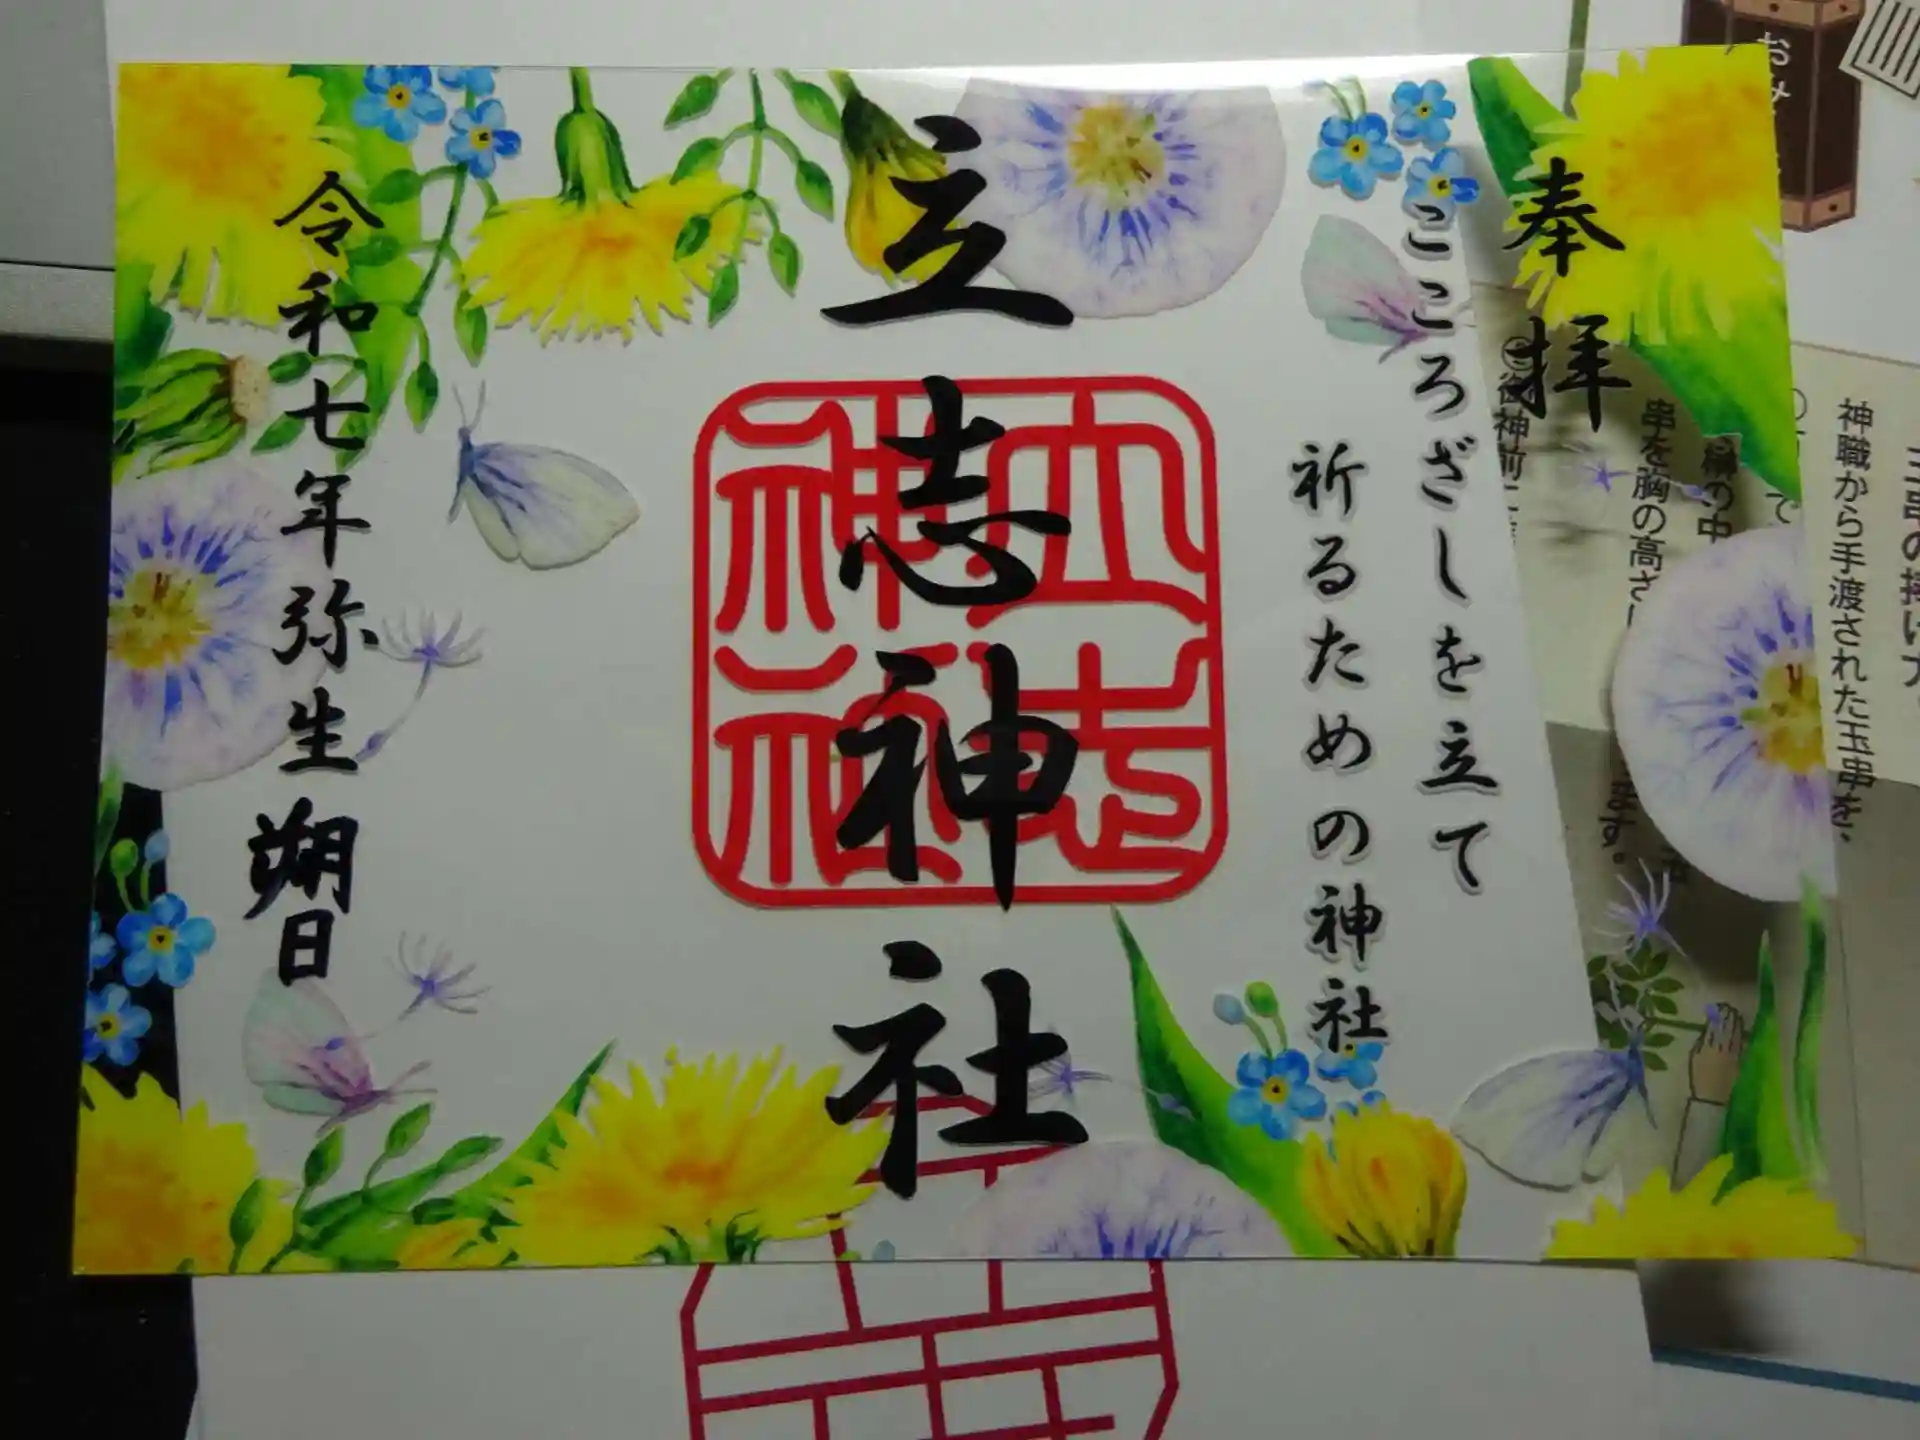 奉拝
こころざしを立て
祈るための神社
立志神社
立志神社
令和七年弥生朔日
おみ
神職から手渡された玉串を、
串を胸の高さ
ます。